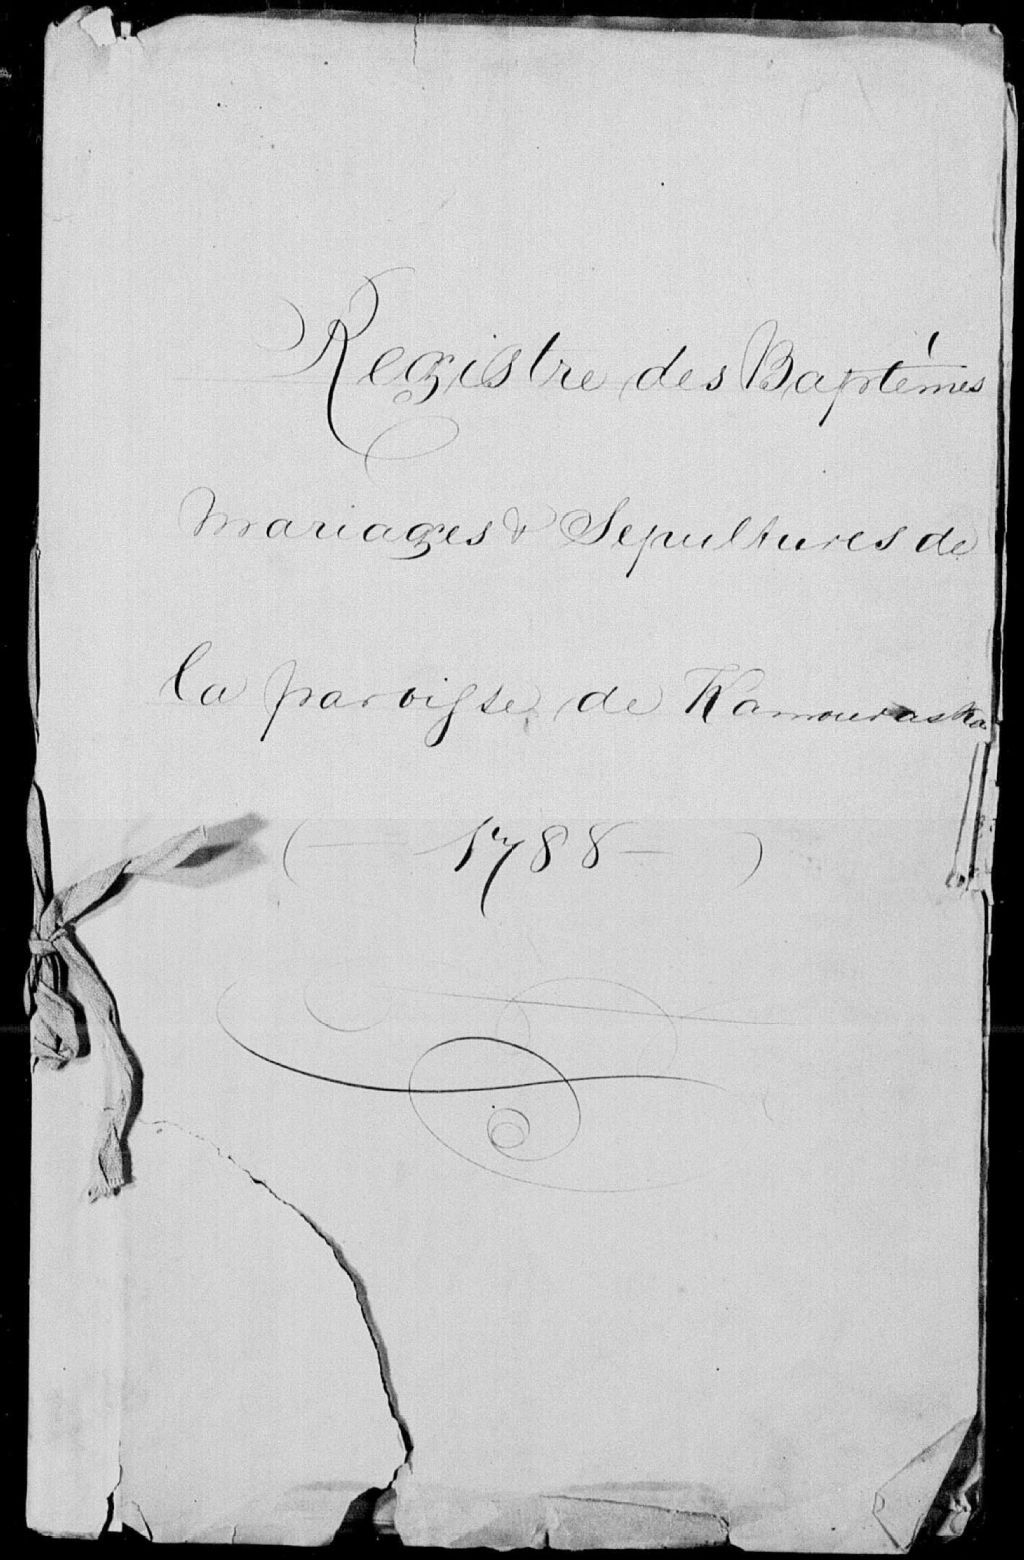 Registre des Baptêmes
Mariages & Sepultures de
la paroisse de Kamouraska
( — 1788 — )